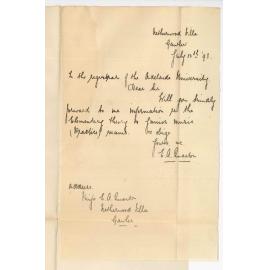 Netherwood Villa
Gawler
July 10th '93.
To the registrar of the Adelaide University
Dear Sir
Will you kindly
forward to me information re the
Elementary theory & Junior music
(Practice) exams. &
Yours etc
Address.
Miss
Netherwood Villa
Gawler